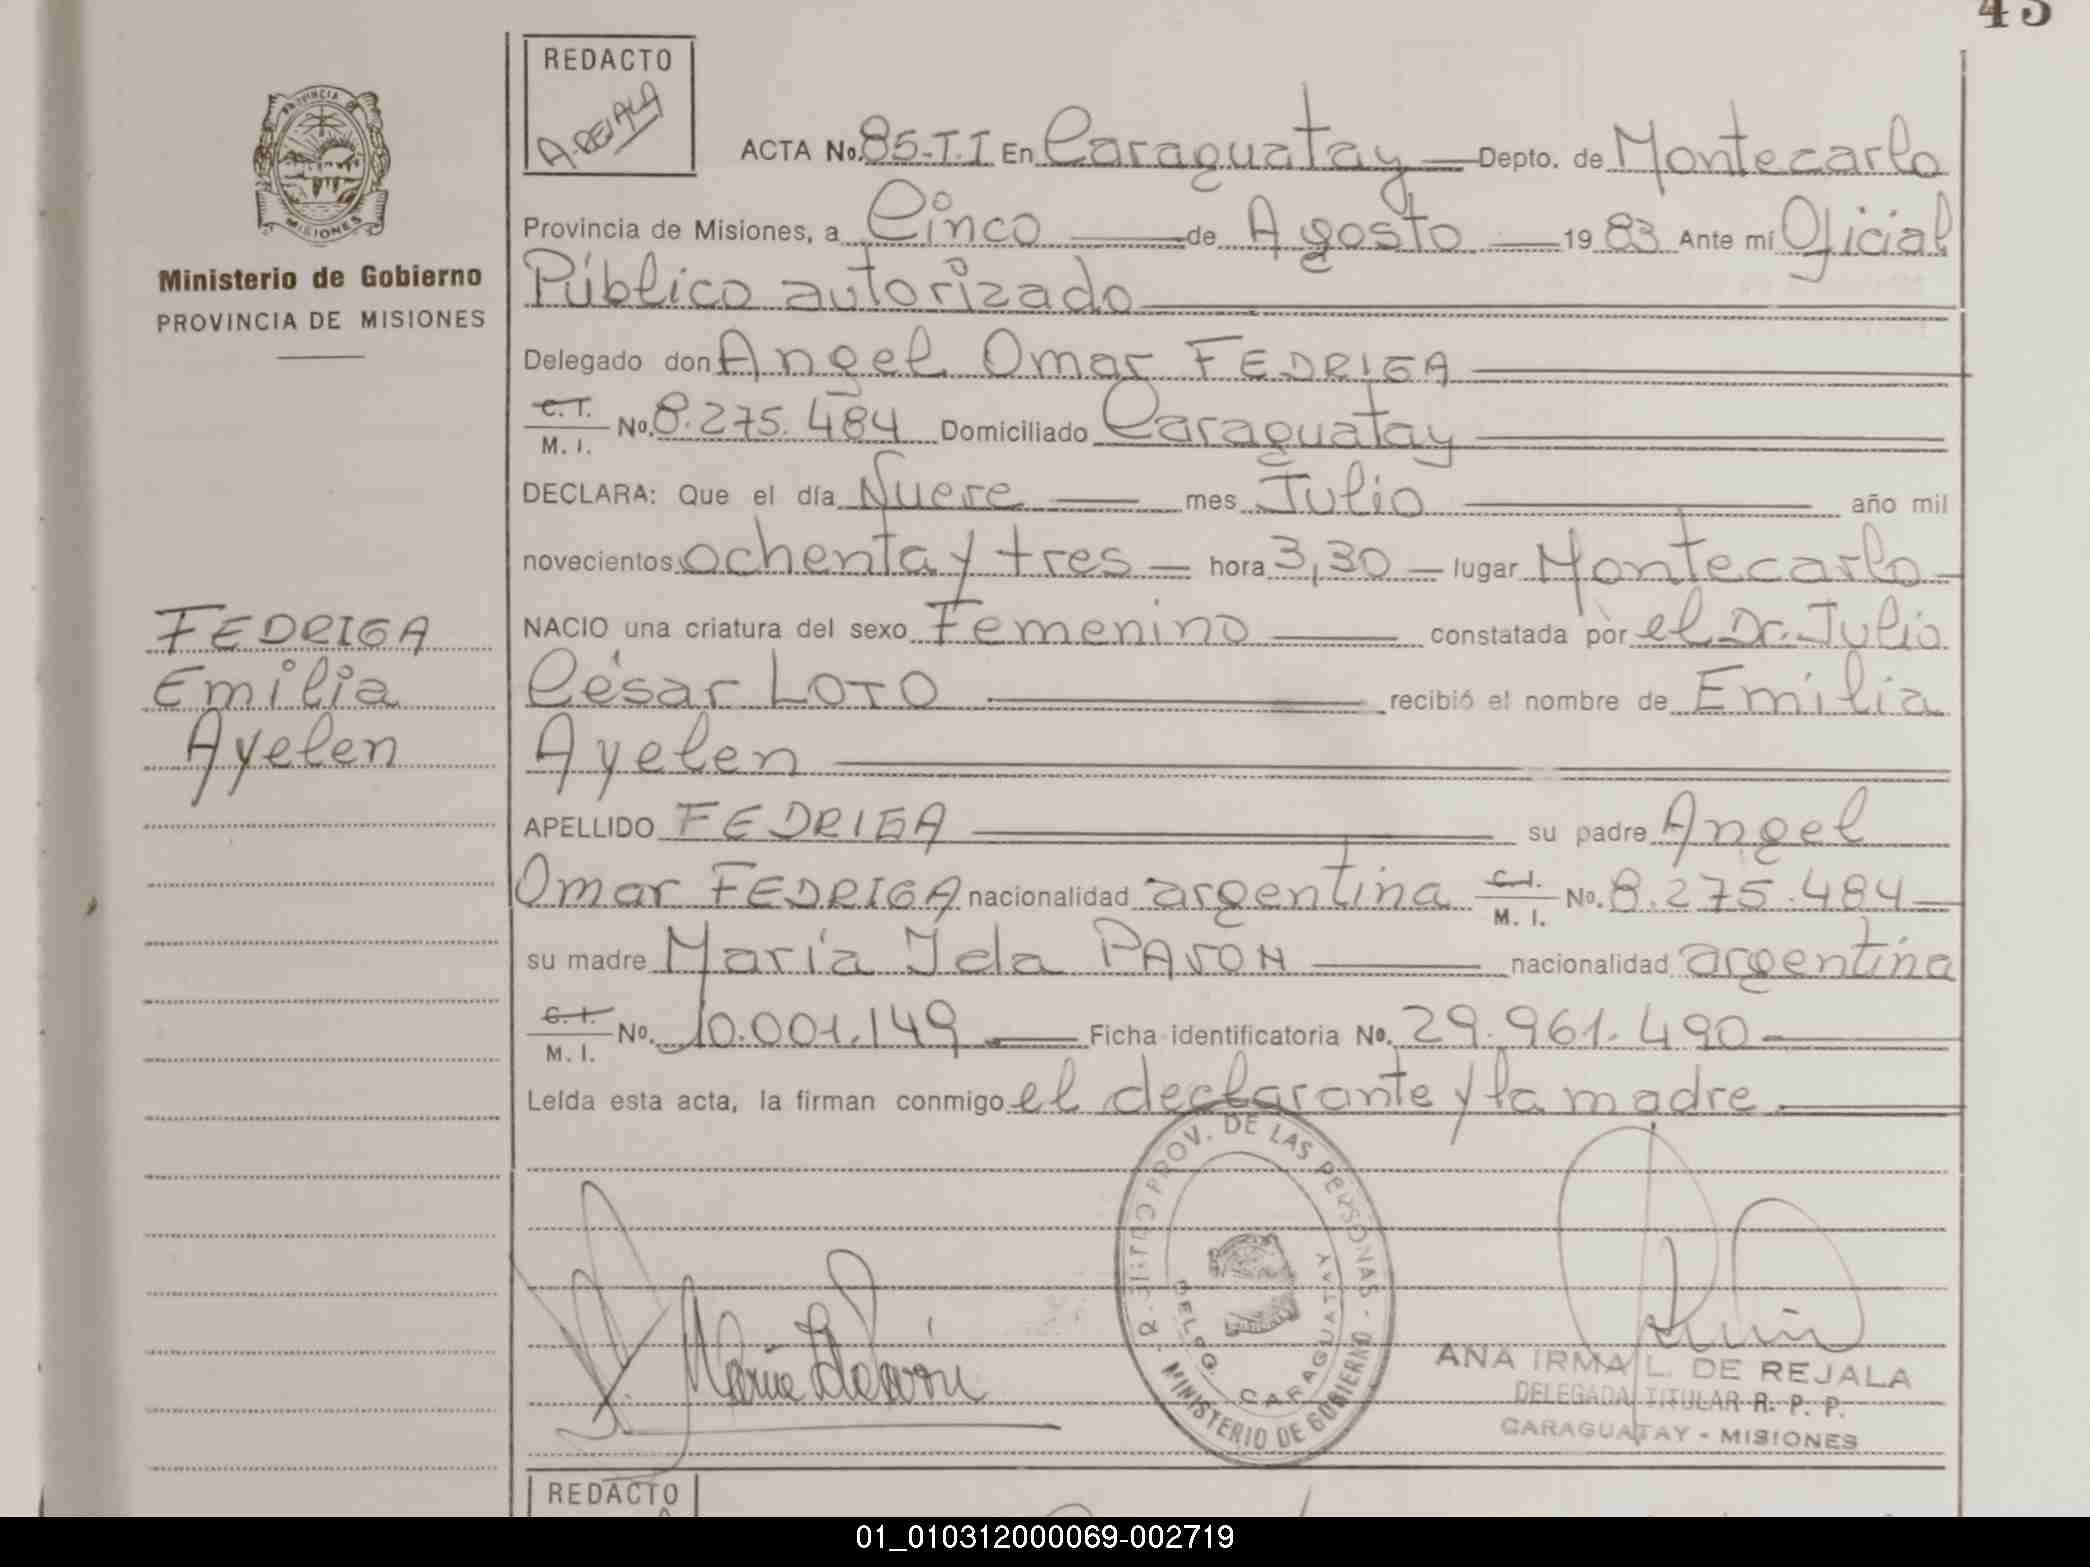 43
REDACTO
A. REJALA
PROVINCIA DE
MISIONES
Ministerio de Gobierno
PROVINCIA DE MISIONES
ACTA No. 85-T.I En Caraguatay Depto. de Montecarlo
Provincia de Misiones, a Cinco de Agosto 1983 Ante mi Oficial
Público autorizado
Delegado don Angel Omar FEDRIGA
C.I. M. I. No. 8.275.484 Domiciliado Caraguatay
DECLARA: Que el día Nueve mes Julio año mil
novecientos ochenta y tres hora 3,30 lugar Montecarlo
NACIO una criatura del sexo Femenino constatada por el Dr. Julio
César LOTO recibió el nombre de Emilia
Ayelen
APELLIDO FEDRIGA su padre Angel
Omar FEDRIGA nacionalidad argentina C.I. M. I. No. 8.275.484
su madre María Ida PAVON nacionalidad argentina
C.I. M. I. No. 10.001.149 Ficha identificatoria No. 29.961.490
Leída esta acta, la firman conmigo el declarante y la madre
FEDRIGA
Emilia
Ayelen
REGISTRO PROV. DE LAS PERSONAS - MINISTERIO DE GOBIERNO
DELEG. CARAGUATAY
ANA IRMA L. DE REJALA
DELEGADA TITULAR R. P. P.
CARAGUATAY - MISIONES
REDACTO
01_010312000069-002719